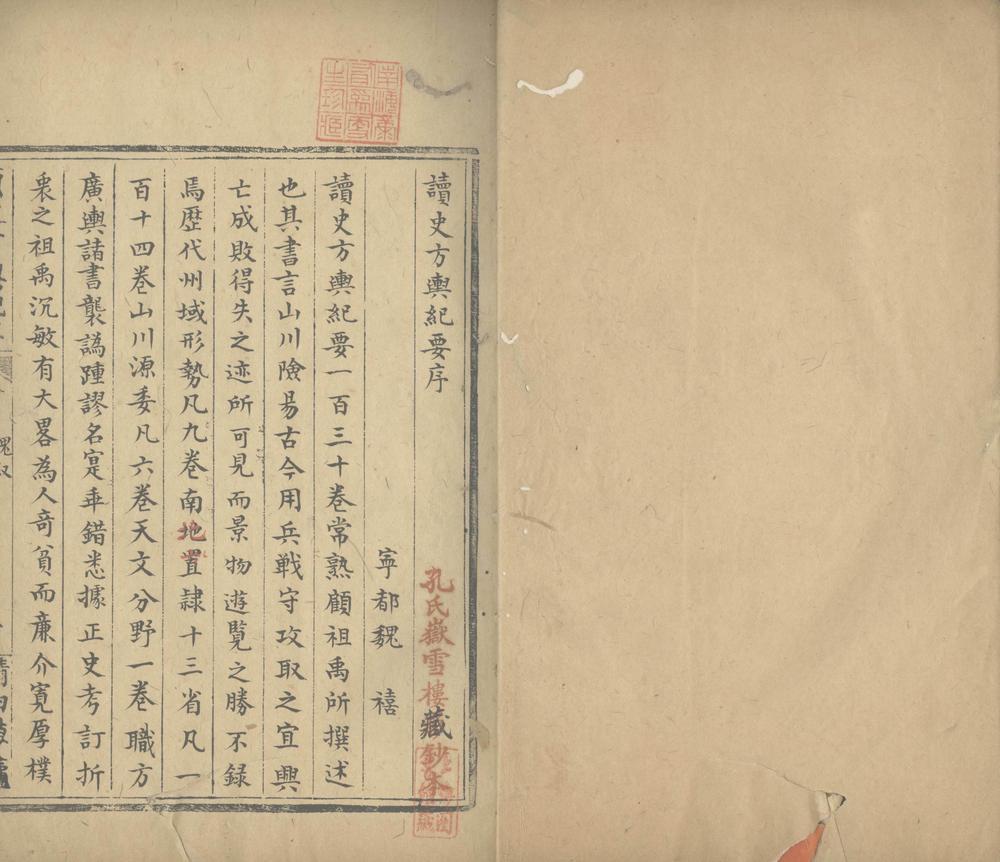 讀史方輿紀要序
寧都魏 禧
讀史方輿紀要一百三十卷常熟顧祖禹所撰述
也其書言山川險易古今用兵戰守攻取之宜興
亡成敗得失之迹所可見而景物遊覽之勝不録
焉歷代州域形勢凡九卷南北直隷十三省凡一
百十四卷山川源委凡六卷天文分野一卷職方
廣輿諸書襲譌踵謬名寔乖錯悉據正史考訂折
衷之祖禹沉敏有大畧為人奇貧而亷介寛厚樸
孔氏嶽雪樓藏鈔本